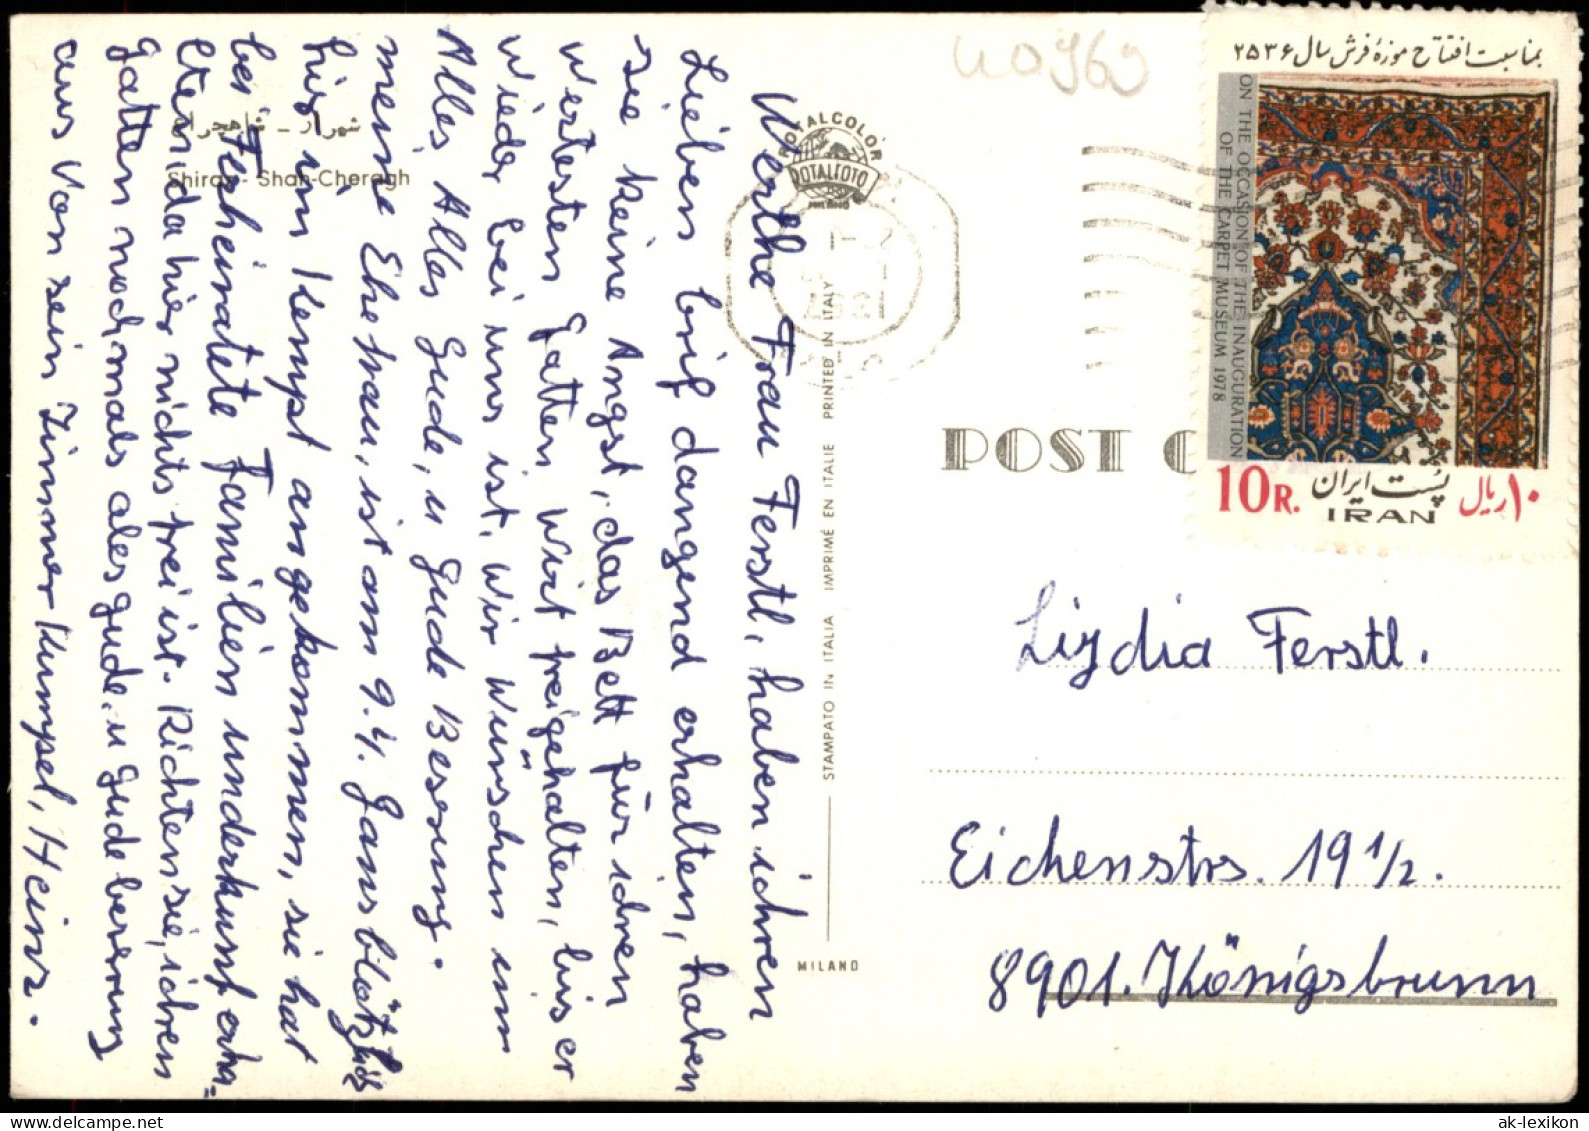 Werthe Frau Ferstl, haben ichren
Lieben brif dangend erhalten, haben
sie keine Angst, das Bett für ichren
wertesten Gatten wirt freigehalten, bis er
wieder bei uns ist. Wir wünschen im
Alles Alles Gude, u Gude Beserung.
meine Ehefrau, ist am 9.4. Gans blötzlich
hir im Kempt angekommen, sie hat
bei Ferheiratete Familien underkunf erha
lten, da hier nichts frei ist. Richten sie, ichren
Gatten nochmals ales gude. u Gude beserung
aus von sein Zimmer Kumpel, Heinz.
شیراز - شاهچراغ
Shiraz - Shah-Cheragh
ROTALCOLOR
ROTALFOTO
MILANO
STAMPATO IN ITALIA IMPRIMÉ EN ITALIE PRINTED IN ITALY
MILANO
40969
POST C
بمناسبت افتتاح موزهٔ فرش سال ۲۵۳۶
ON THE OCCASION OF THE INAUGURATION
OF THE CARPET MUSEUM 1978
10R. پست ایران ۱۰ ریال
IRAN
Liydia Ferstl.
Eichenstrs. 19 1/2.
8901. Königsbrunn
ak-lexikon